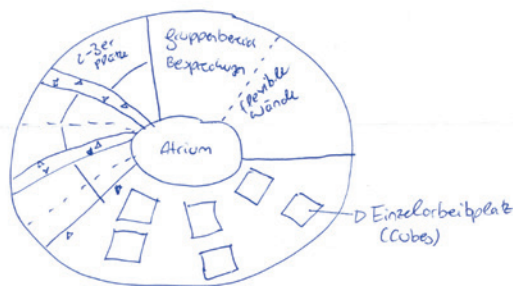 2-3er
Plätze
Gruppenbereich
Besprechungen
flexible
Wände
Atrium
Einzelarbeitsplatz
(Cubes)